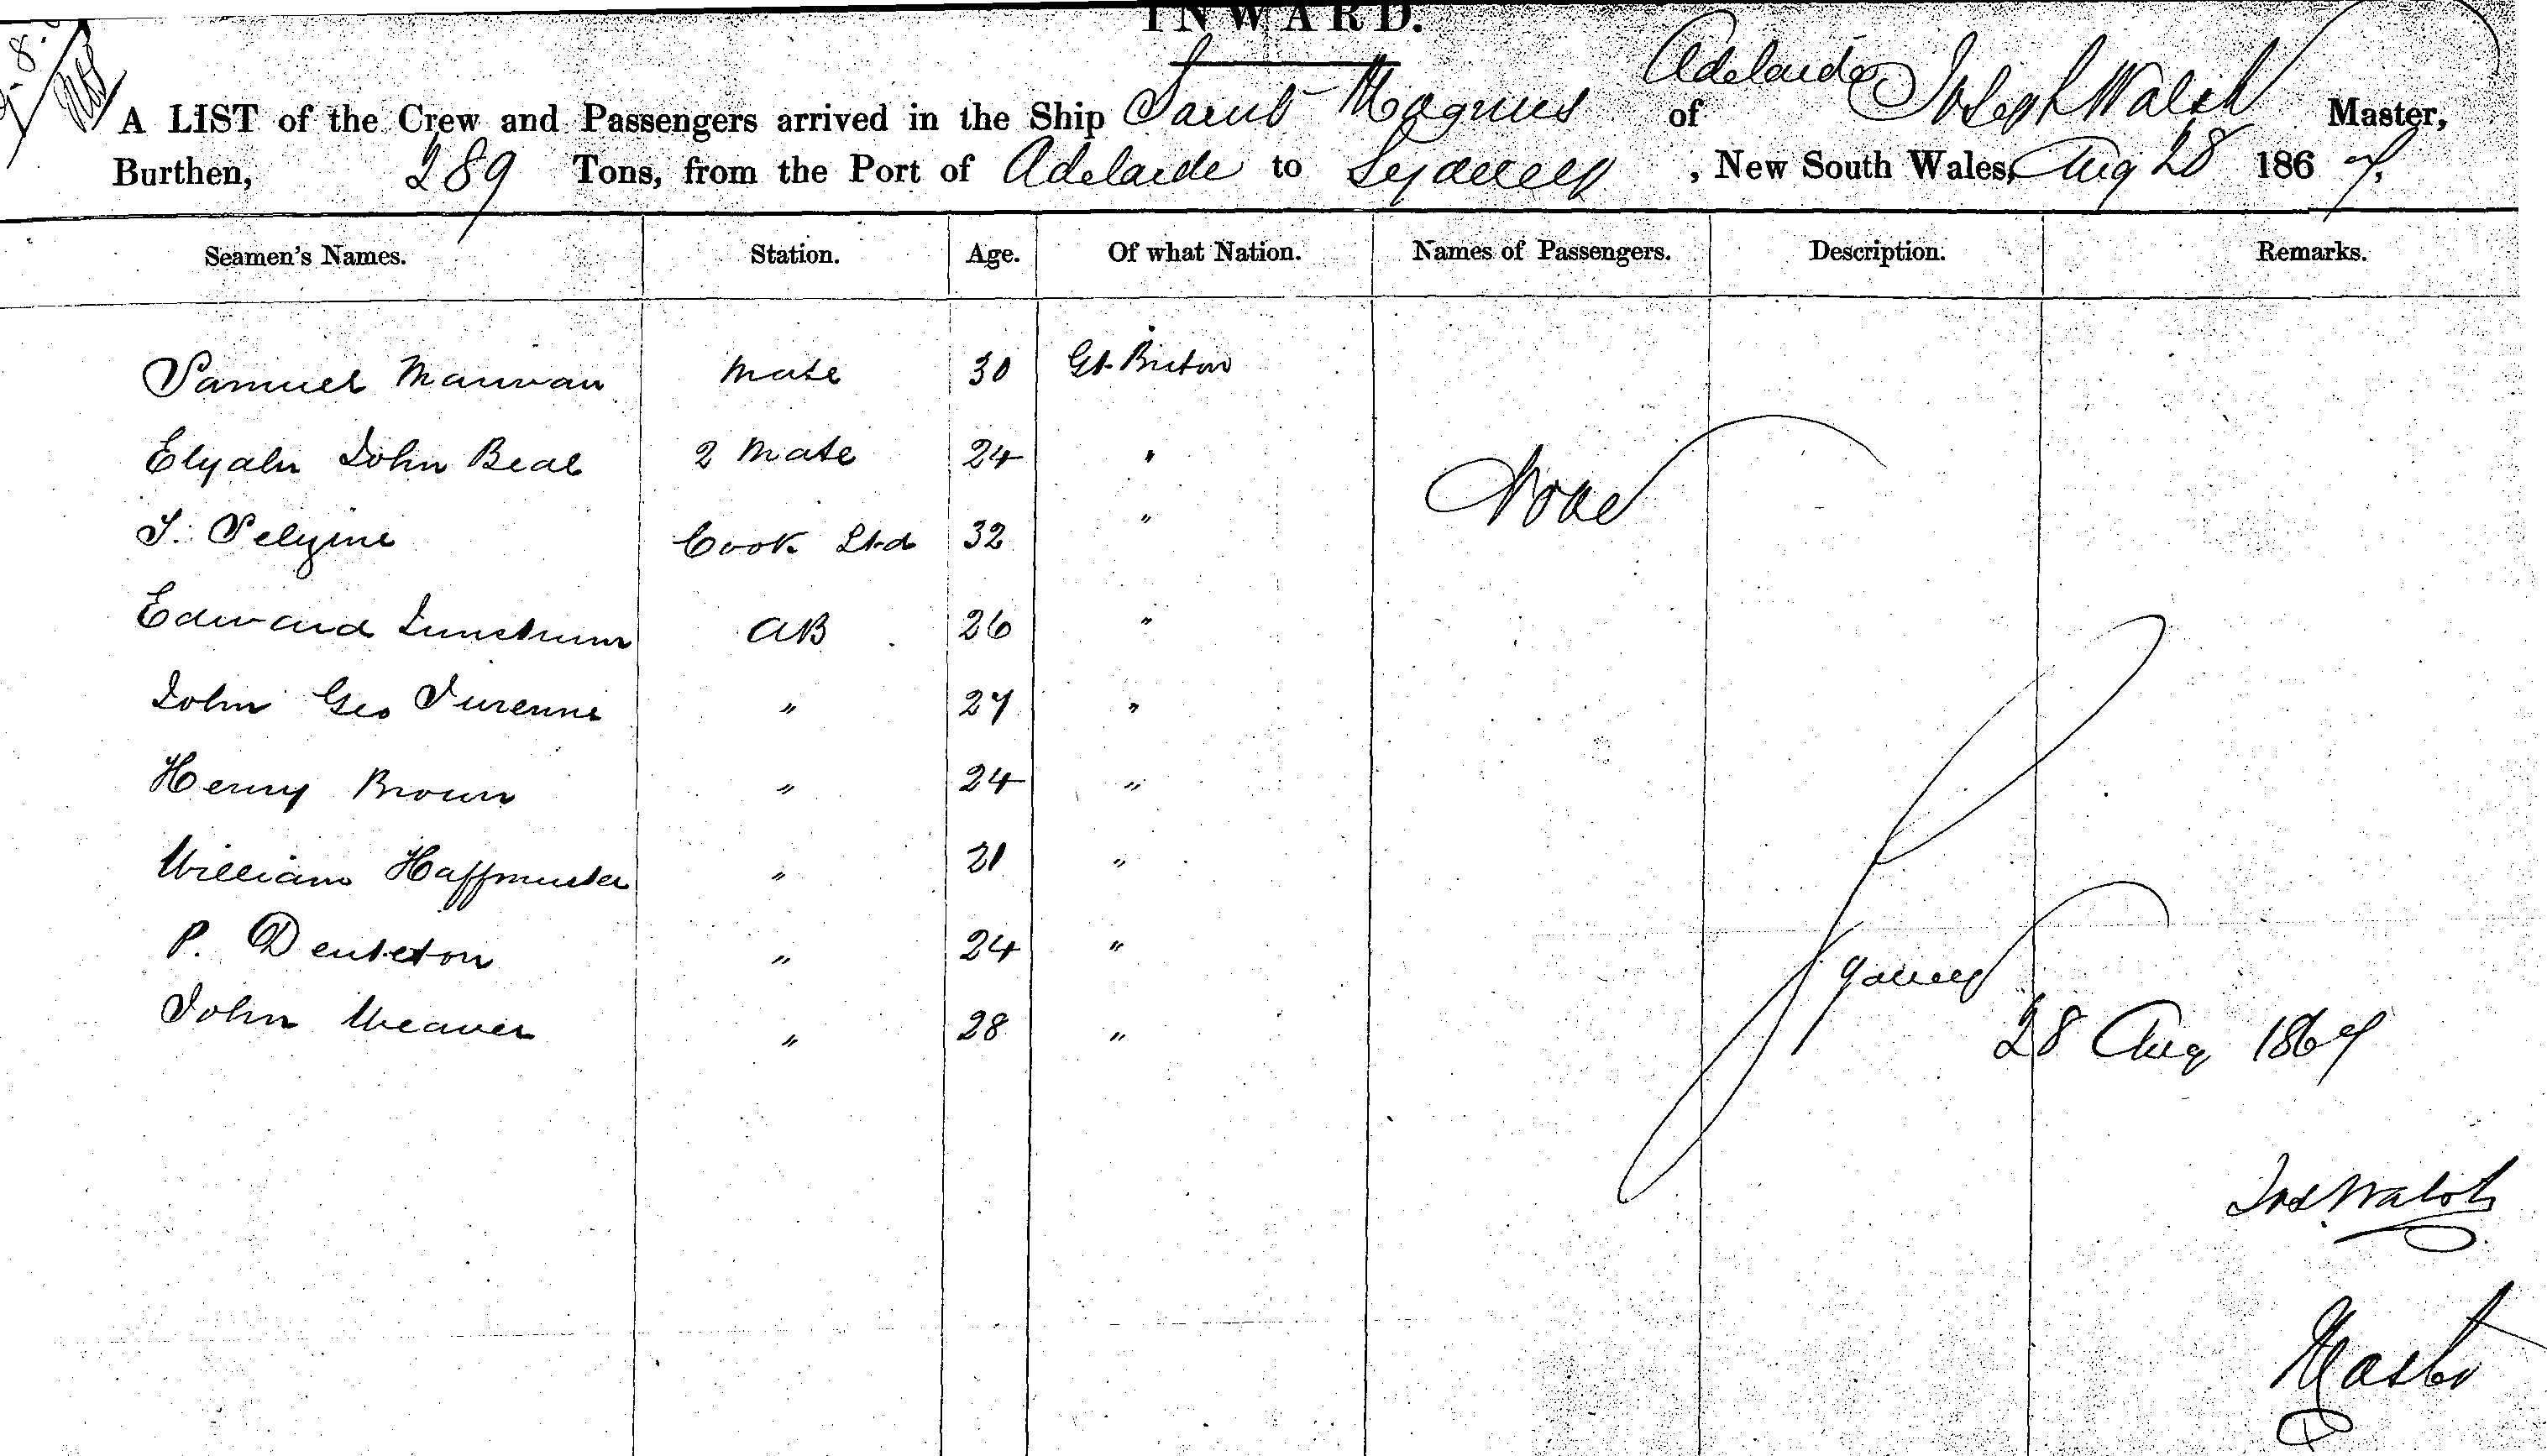 INWARD.
A LIST of the Crew and Passengers arrived in the Ship Saint Magnus of Adelaide Joseph Walsh Master,
Burthen, 289 Tons, from the Port of Adelaide to Sydney, New South Wales, Aug 28 1867.
Seamen's Names. Station. Age. Of what Nation. Names of Passengers. Description. Remarks.
Samuel mate 30 Gt. Briton
John Beal 2 mate 24 "
Cook Std 32 "
Edward AB 26 "
John Geo " 27 "
Henry Brown " 24 "
William " 21 "
P. " 24 "
John Weaver " 28 "
None
28 Aug 1867
Jos. Walsh
Master